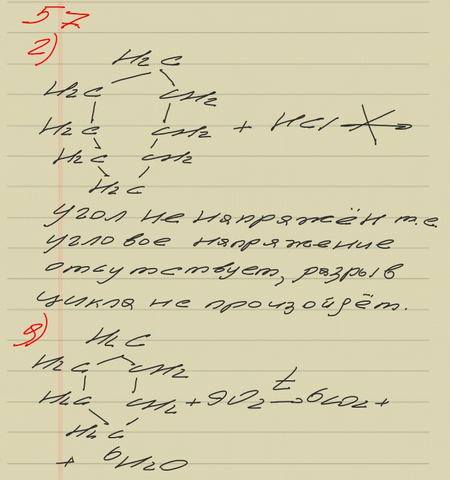 57
2)
H2C
H2C CH2
H2C CH2 + HCl
H2C CH2
H2C
угол не напряжён т.е.
угловое напряжение
отсутствует, разрыв
цикла не произойдёт.
3)
H2C
H2C CH2
H2C CH2 + 9O2 t→ 6CO2 +
H2C
+ 6H2O